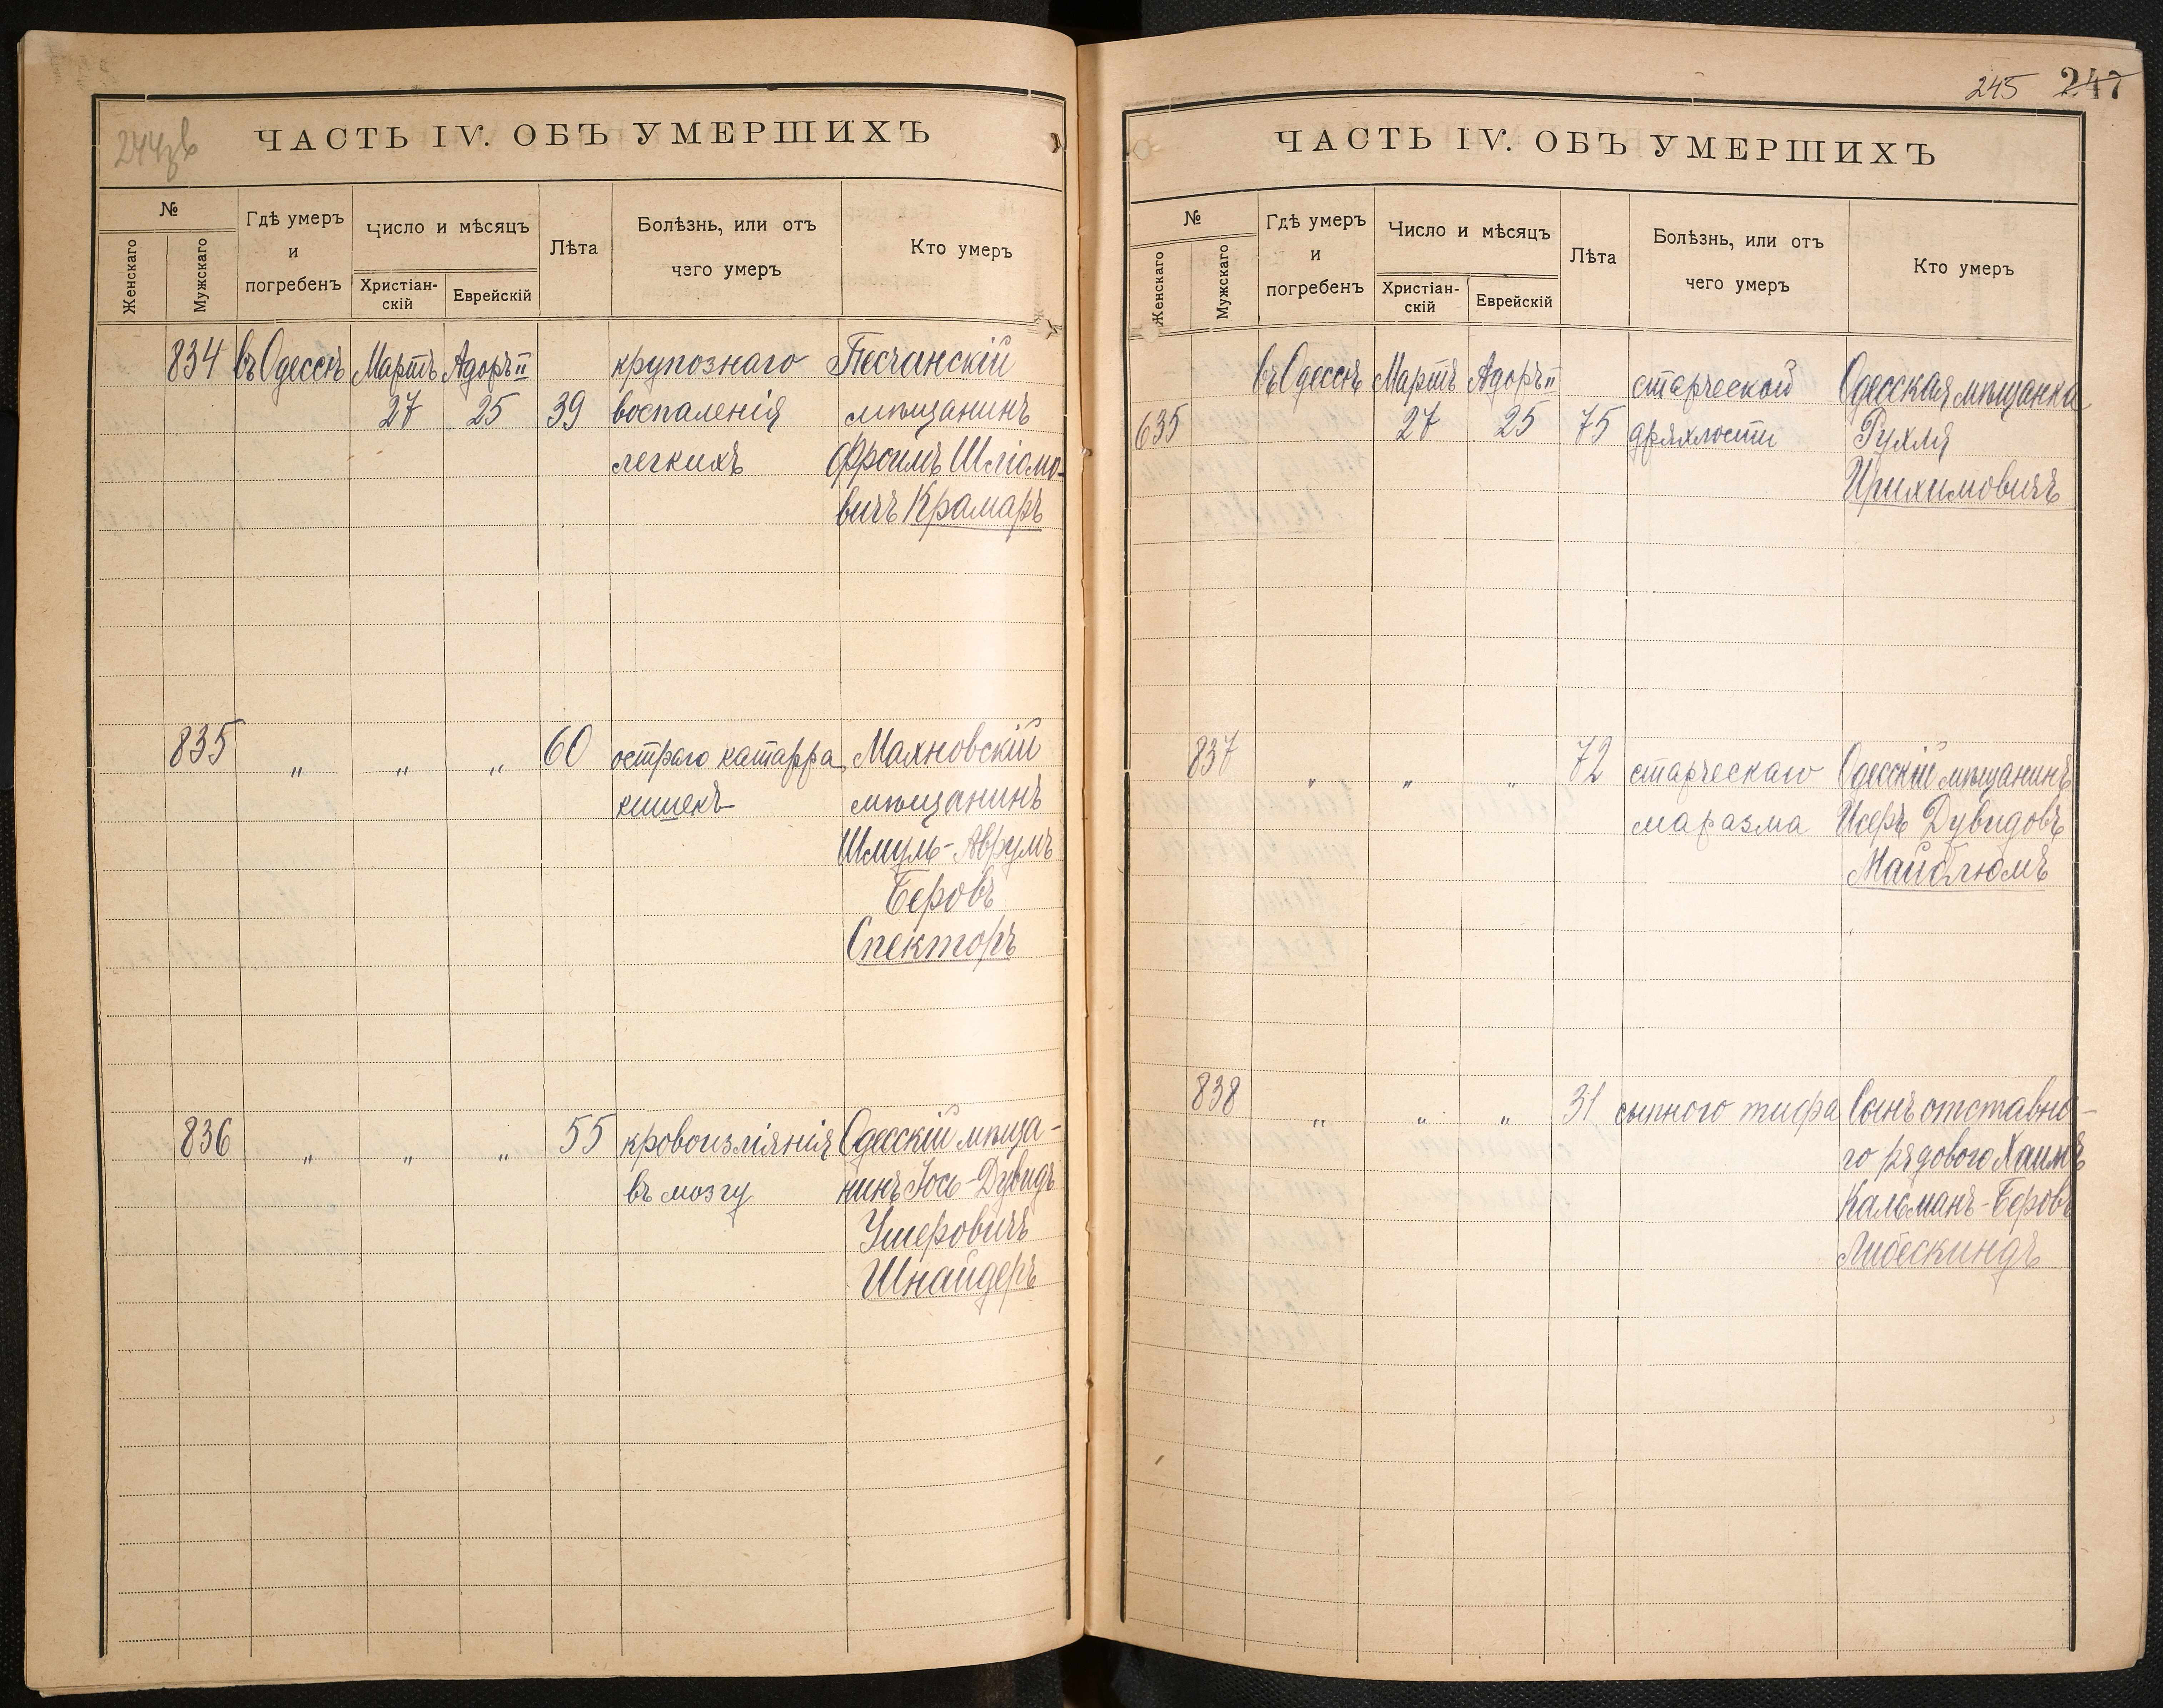 ЧАСТЬ IV. ОБЪ УМЕРШИХЪ
№
Женскаго
Мужскаго
Гдѣ умеръ
и
погребенъ
Число и мѣсяцъ
Христіан-
скій
Еврейскій
Лѣта
Болѣзнь, или отъ
чего умеръ
Кто умеръ
834 въ Одессѣ Мартъ Адоръ II крупознаго Песчанскій
27 25 39 воспаленія мѣщанинъ
легкихъ Фроимъ Шліомо-
вичъ Крамаръ
835 " " " 60 остраго катарра Махновскій
кишекъ мѣщанинъ
Шмуль-Аврумъ
Беровъ
Спекторъ
836 " " " 55 кровоизліянія Одесскій мѣща-
въ мозгу нинъ Іось-Дувидъ
Ушеровичъ
Шнайдеръ
245 247
ЧАСТЬ IV. ОБЪ УМЕРШИХЪ
№
Женскаго
Мужскаго
Гдѣ умеръ
и
погребенъ
Число и мѣсяцъ
Христіан-
скій
Еврейскій
Лѣта
Болѣзнь, или отъ
чего умеръ
Кто умеръ
въ Одессѣ Мартъ Адоръ II старческой Одесская мѣщанка
635 27 25 75 дряхлости Рухля
Ирихимовичъ
837 " " " 72 старческаго Одесскій мѣщанинъ
маразма Исеръ Дувидовъ
Майблюмъ
838 " " " 31 сыпного тифа Сынъ отставно-
го рядового Хаимъ
Кальманъ-Беровъ
Либескиндъ